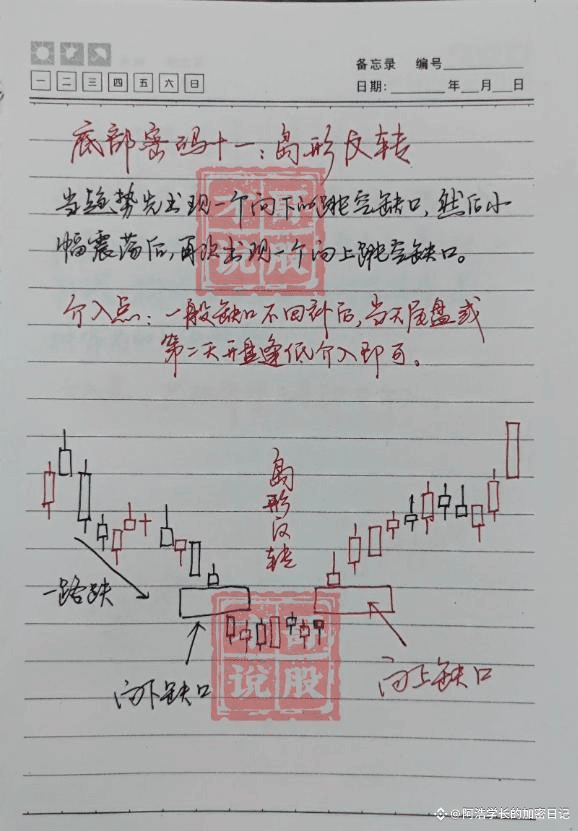 备忘录 编号
一 二 三 四 五 六 日
日期: 年 月 日
底部密码十一:岛形反转
当趋势先出现一个向下的跳空缺口,然后小
幅震荡后,再次出现一个向上跳空缺口。
介入点:一般缺口不回补后,当天尾盘或
第二天开盘逢低介入即可。
岛形反转
一路跌
向下缺口
向上缺口
说股
说股
@阿浩学长的加密日记